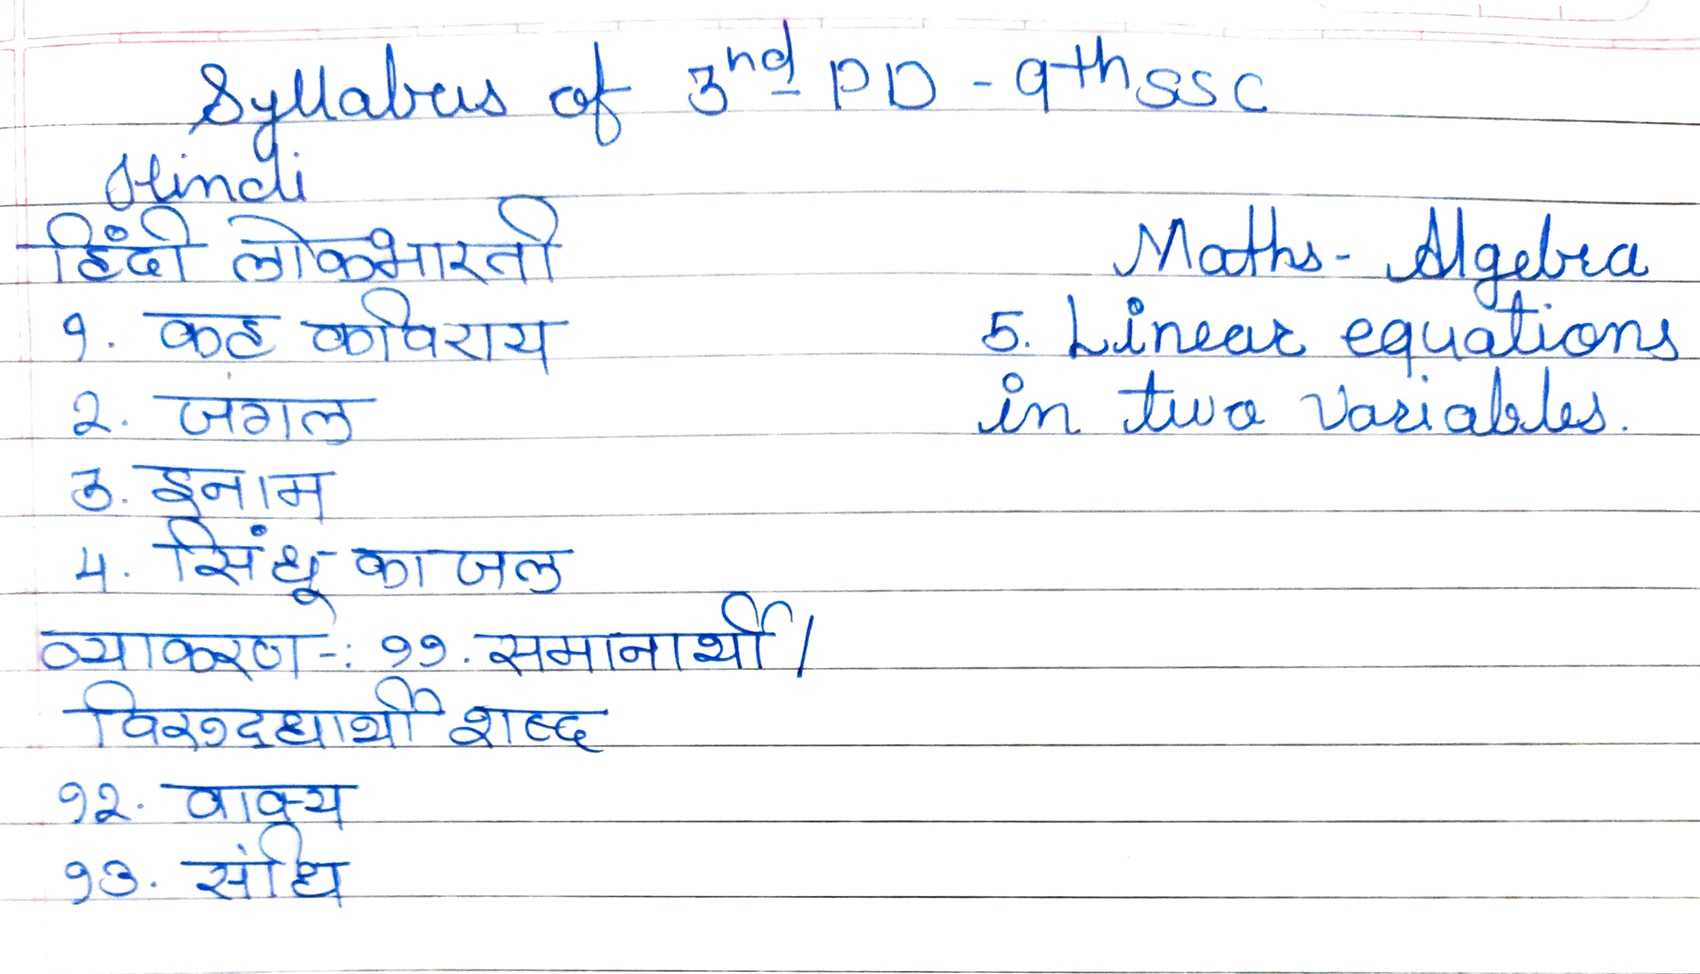 Syllabus of 3nd PD - 9th SSC
Hindi
हिंदी लोकभारती
१. कह कविराय
२. जंगल
३. इनाम
४. सिंधू का जल
व्याकरण -: ११. समानार्थी /
विरुद्धार्थी शब्द
१२. वाक्य
१३. संधि
Maths - Algebra
5. Linear equations
in two variables.